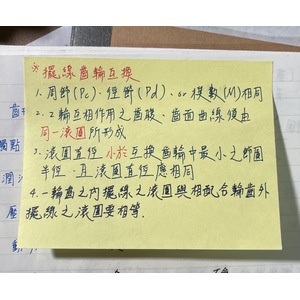 ※擺線齒輪互換
1. 周節(Pc)、徑節(Pd)、or 模數(M)相同
2. 2輪互相作用之齒腹、齒面曲線須由
同一滾圓所形成
3. 滾圓直徑小於互換齒輪中最小之節圓
半徑,且滾圓直徑應相同
4. 一輪齒之內擺線之滾圓與相配合輪齒外
擺線之滾圓要相等.